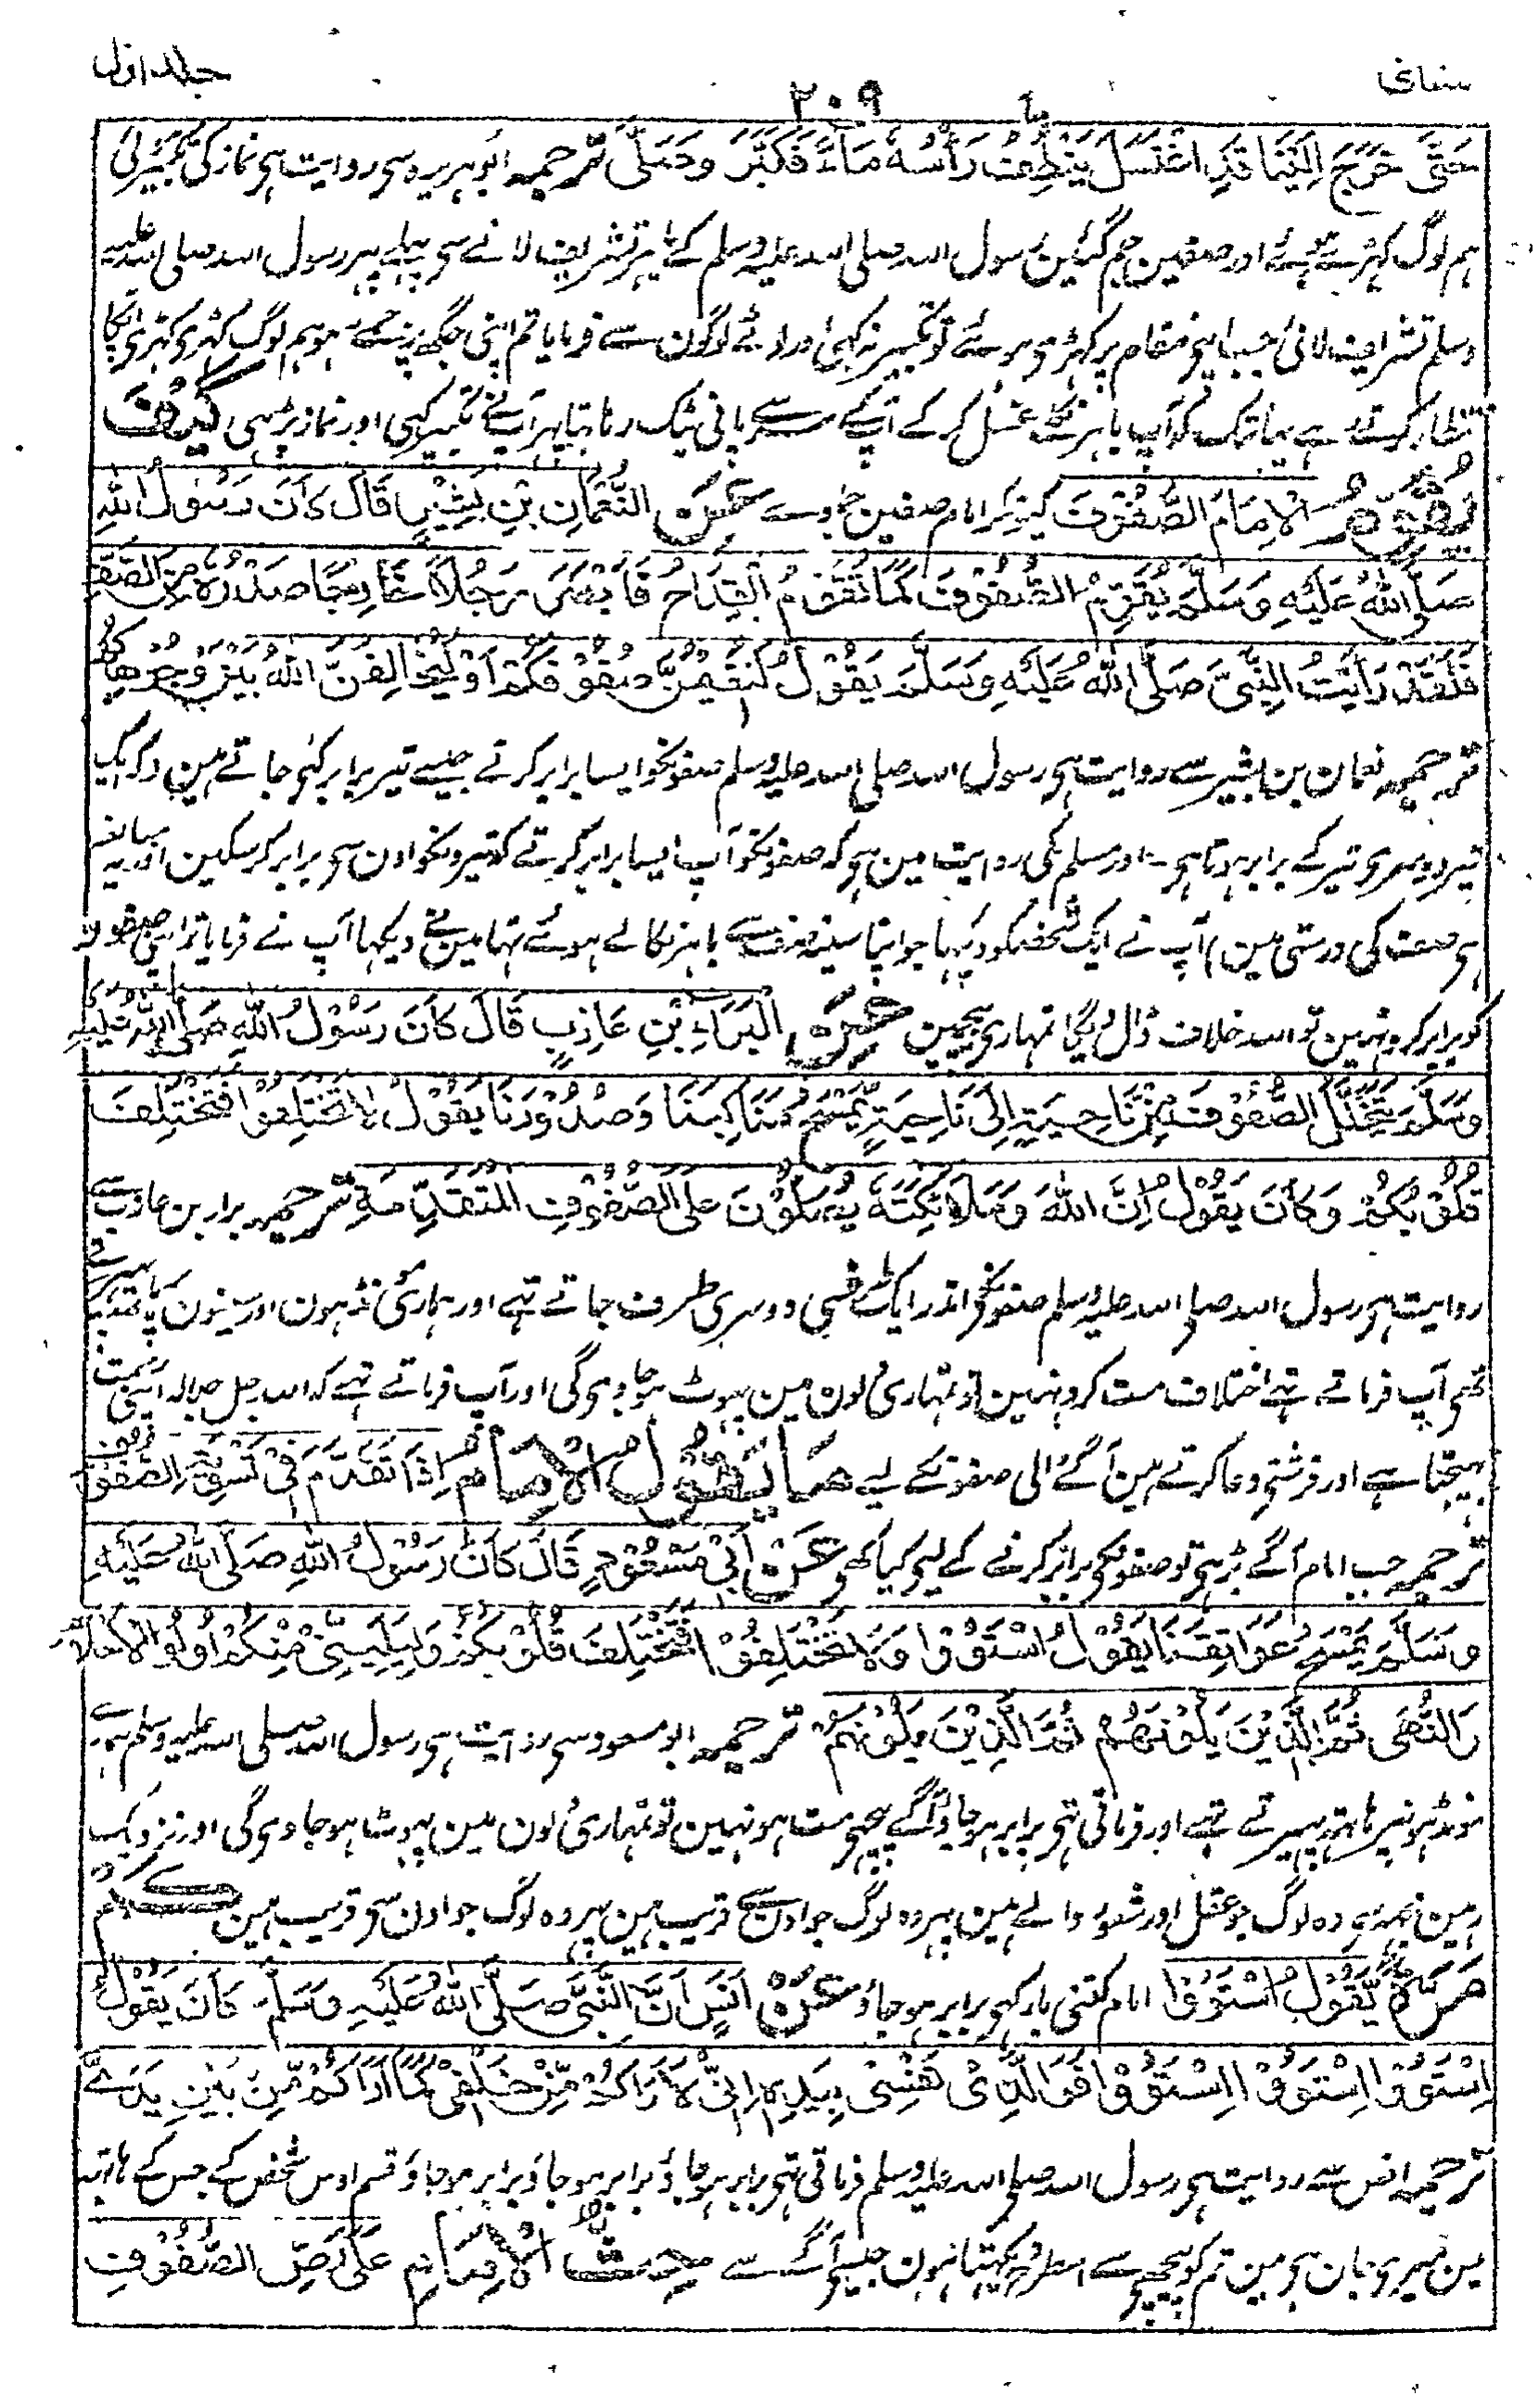 جلد اول ۲۰۹ سنائی
حَتّٰى خَرَجَ اِلَيْنَا قَدِ اغْتَسَلَ يَنْطِفُ رَأْسُهٗ مَاءً فَكَبَّرَ وَصَلّٰى ترجمہ ابوہریرہ سی روایت ہی نماز کی تکبیر ہوئی
ہم لوگ کہڑے ہوئے اور صفین جم گئین رسول اللہ صلی اللہ علیہ وسلم کے باہر تشریف لانے سی پہلے پہر رسول اللہ صلی اللہ علیہ
وسلم تشریف لائی جب اپنی مقام پر کہڑی ہوئے تو تکبیر نہ کہی اور لوگون سے فرمایا تم اپنی جگہہ پر جمے رہو ہم لوگ کہڑی کہڑی آپکا
انتظار کرتے رہے یہانتک کہ آپ باہر نکلے غسل کر کے آپ کے سر سے پانی ٹپک رہا تہا پہر آپنے تکبیر کہی اور نماز پڑہی كَيْفَ
يُقَوِّمُ الْاِمَامُ الصُّفُوْفَ کیونکر امام صفین جماوے عَنِ النُّعْمَانِ بْنِ بَشِيْرٍ قَالَ كَانَ رَسُوْلُ اللّٰهِ
صَلَّى اللّٰهُ عَلَيْهِ وَسَلَّمَ يُقَوِّمُ الصُّفُوْفَ كَمَا تُقَوَّمُ الْقِدَاحُ فَاَبْصَرَ رَجُلًا خَارِجًا صَدْرُهٗ مِنَ الصَّفِّ
فَلَقَدْ رَاَيْتُ النَّبِىَّ صَلَّى اللّٰهُ عَلَيْهِ وَسَلَّمَ يَقُوْلُ لَتُقِيْمُنَّ صُفُوْفَكُمْ اَوْ لَيُخَالِفَنَّ اللّٰهُ بَيْنَ وُجُوْهِكُمْ
ترجمہ نعمان بن بشیر سے روایت ہی رسول اللہ صلی اللہ علیہ وسلم صفونکو ایسا برابر کرتے جیسے تیر برابر کئی جاتے ہین (کہ ایک
تیر دوسری تیر کے برابر ہوتا ہی ۔ اور مسلم کی روایت مین ہی کہ صفونکو آپ ایسا برابر کرتے کہ تیرونکو اون سی برابر کر سکین اور یہ مبالغہ
ہی صف کی درستی مین) آپ نے ایک شخص کو دیکہا جو اپنا سینہ صف سے باہر نکالے ہوئے تہا مین نے دیکہا آپ نے فرمایا تم اپنی صفون
کو برابر کرو نہین تو اللہ خلاف ڈال دیگا تمہاری بیچمین عَنِ الْبَرَاءِ بْنِ عَازِبٍ قَالَ كَانَ رَسُوْلُ اللّٰهِ صَلَّى اللّٰهُ عَلَيْهِ
وَسَلَّمَ يَتَخَلَّلُ الصُّفُوْفَ مِنْ نَاحِيَةٍ اِلٰى نَاحِيَةٍ يَمْسَحُ مَنَاكِبَنَا وَصُدُوْرَنَا يَقُوْلُ لَا تَخْتَلِفُوْا فَتَخْتَلِفَ
قُلُوْبُكُمْ وَكَانَ يَقُوْلُ اِنَّ اللّٰهَ وَمَلَائِكَتَهٗ يُصَلُّوْنَ عَلَى الصُّفُوْفِ الْمُتَقَدِّمَةِ ترجمہ برابر بن عازب سے
روایت ہی رسول اللہ صلی اللہ علیہ وسلم صفونکے اندر ایکطرف سی دوسری طرف جاتے تہے اور ہماری مونڈہون اور سینون پر ہاتہہ پہیرتے
تہی آپ فرماتے تہے اختلاف مت کرو نہین تو تمہاری دلون مین پہوٹ ہو جاوی گی اور آپ فرماتے تہے کہ اللہ جل جلالہ اپنی رحمت
بہیجتا ہے اور فرشتی دعا کرتے ہین آگے والی صفونکے لیے مَا يَقُوْلُ الْاِمَامُ اِذَا تَقَدَّمَ فِىْ تَسْوِيَةِ الصُّفُوْفِ
ترجمہ جب امام آگے بڑہی تو صفونکی برابر کرنے کے لیی کیا کہی عَنْ اَبِىْ مَسْعُوْدٍ قَالَ كَانَ رَسُوْلُ اللّٰهِ صَلَّى اللّٰهُ عَلَيْهِ
وَسَلَّمَ يَمْسَحُ عَوَاتِقَنَا يَقُوْلُ اسْتَوُوْا وَلَا تَخْتَلِفُوْا فَتَخْتَلِفَ قُلُوْبُكُمْ وَلْيَلِيَنِّىْ مِنْكُمْ اُولُوا الْاَحْلَامِ
وَالنُّهٰى ثُمَّ الَّذِيْنَ يَلُوْنَهُمْ ثُمَّ الَّذِيْنَ يَلُوْنَهُمْ ترجمہ ابو مسعود سی روایت ہی رسول اللہ صلی اللہ علیہ وسلم ہمارے
مونڈہونپر ہاتہہ پہیرتے تہے اور فرماتی تہی برابر ہو جاؤ آگے پیچہی مت ہو نہین تو تمہاری دلون مین پہوٹ ہو جاوی گی اور نزدیک
رہین مجہہ سی وہ لوگ جو عقل اور شعور والے ہین پہر وہ لوگ جو اون سے قریب ہین پہر وہ لوگ جو اون سی قریب ہین كَمْ
مَرَّةً يَّقُوْلُ اسْتَوُوْا امام کتنی بار کہی برابر ہو جاؤ عَنْ اَنَسٍ اَنَّ النَّبِىَّ صَلَّى اللّٰهُ عَلَيْهِ وَسَلَّمَ كَانَ يَقُوْلُ
اِسْتَوُوْا اِسْتَوُوْا اِسْتَوُوْا فَوَالَّذِىْ نَفْسِىْ بِيَدِهٖ اِنِّىْ لَاَرَاكُمْ مِّنْ خَلْفِىْ كَمَا اَرَاكُمْ مِّنْ بَيْنِ يَدَىَّ
ترجمہ انس سے روایت ہی رسول اللہ صلی اللہ علیہ وسلم فرماتی تہی برابر ہو جاؤ برابر ہو جاؤ برابر ہو جاؤ قسم اوس شخص کے جس کے ہاتہہ
مین میری جان ہی مین تم کو پیچہی سے اسطرح دیکہتا ہون جیسے آگے سے حَثُّ الْاِمَامِ عَلٰى رَصِّ الصُّفُوْفِ